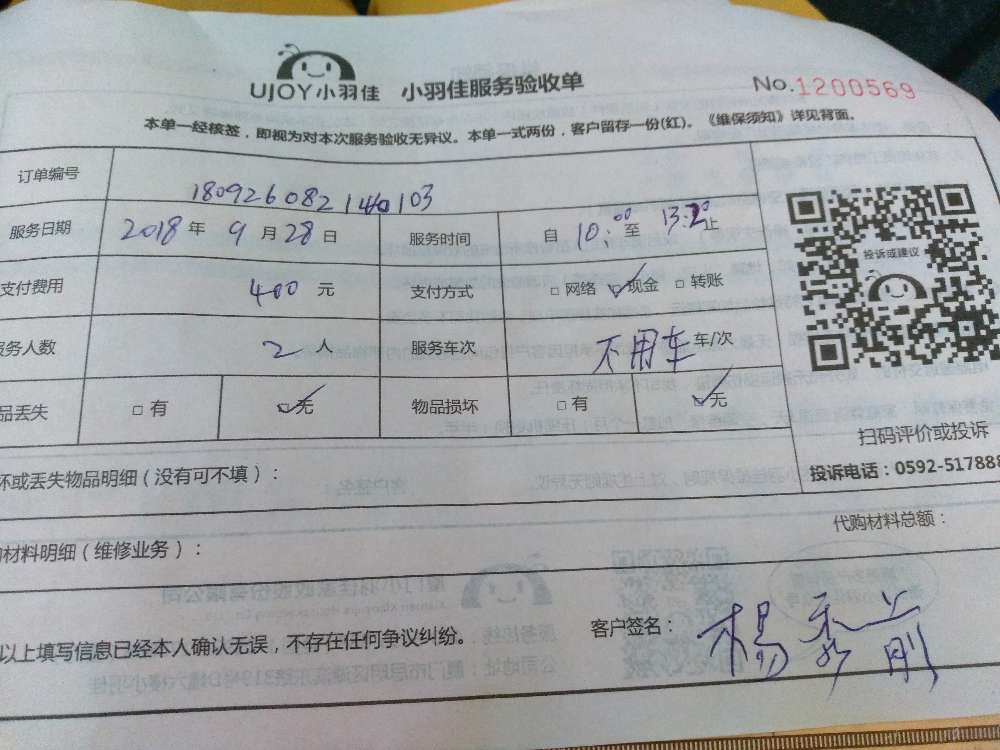 UJOY小羽佳 小羽佳服务验收单 No.1200569
本单一经核签，即视为对本次服务验收无异议。本单一式两份，客户留存一份(红)。《维保须知》详见背面。
订单编号 180926082140103
服务日期 2018年9月28日 服务时间 自10:00至13:20止
支付费用 400元 支付方式 □网络 ☑现金 □转账
服务人数 2人 服务车次 不用车 车/次
品丢失 □有 ☑无 物品损坏 □有 ☑无
投诉或建议
扫码评价或投诉
投诉电话：0592-517888
坏或丢失物品明细（没有可不填）：
代购材料总额：
材料明细（维修业务）：
以上填写信息已经本人确认无误，不存在任何争议纠纷。 客户签名：杨